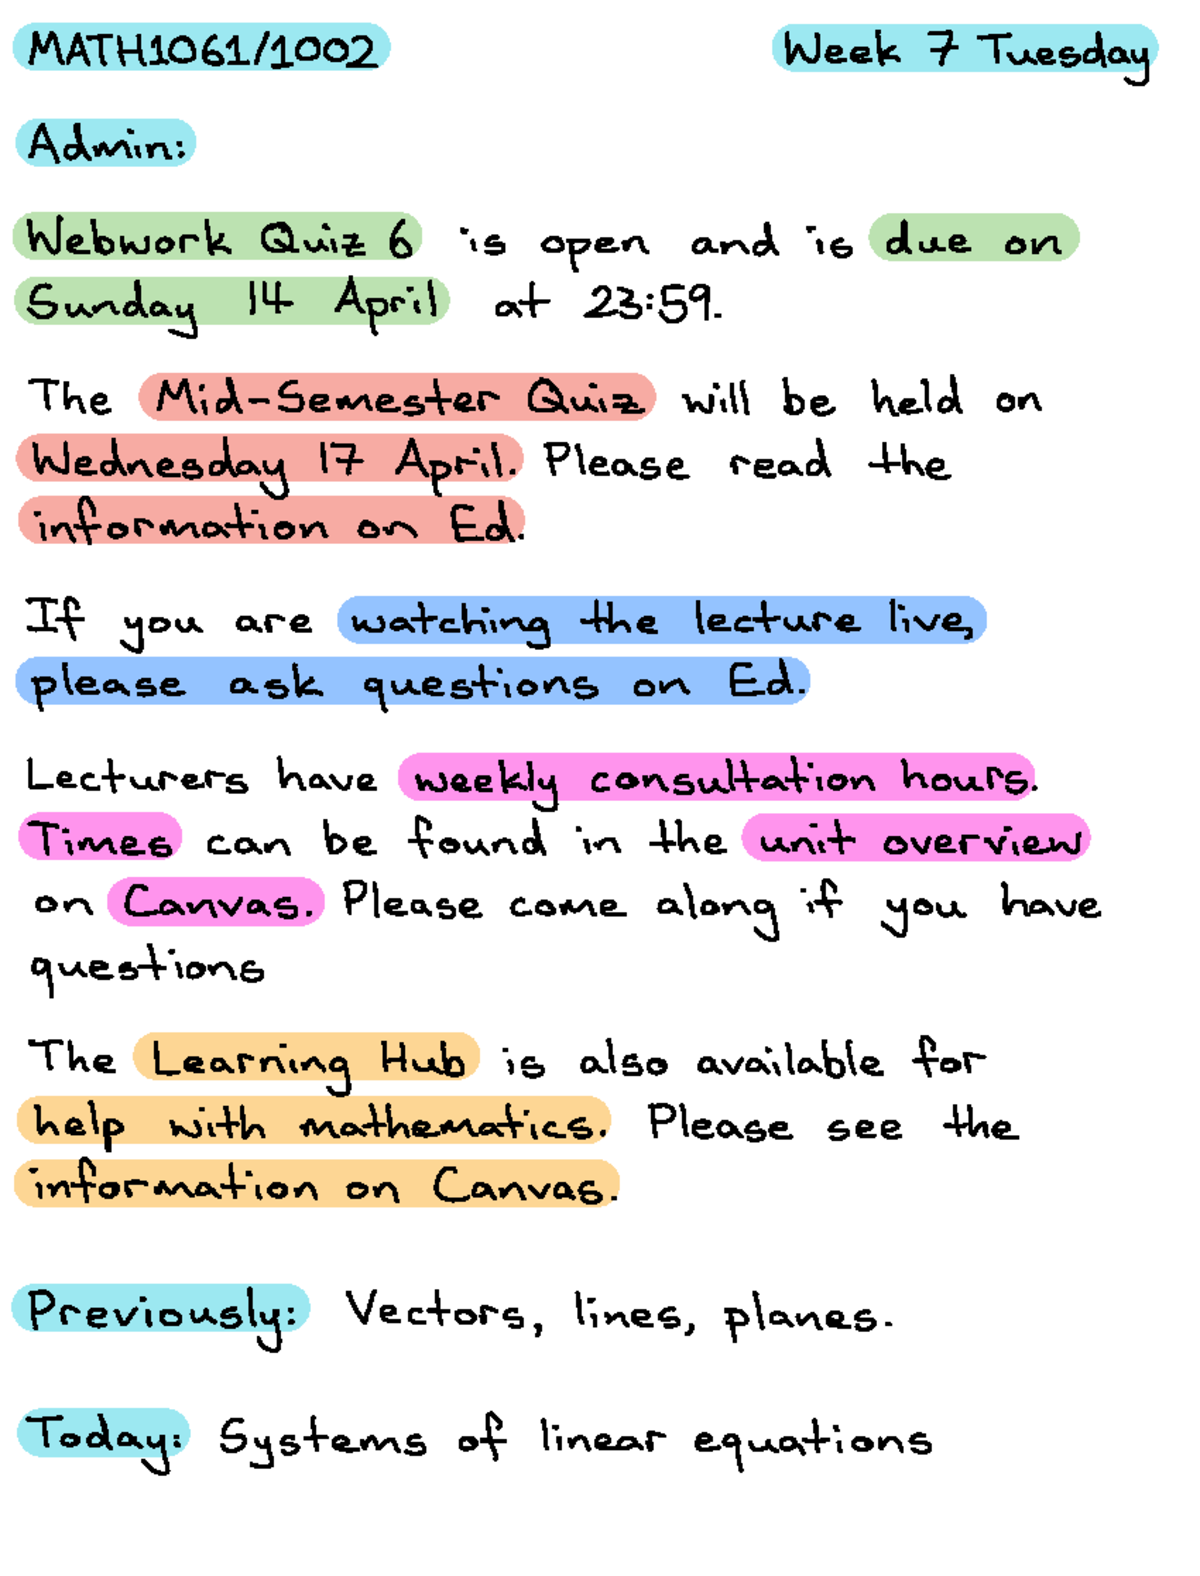 MATH1061/1002 Week 7 Tuesday
Admin:
Webwork Quiz 6 is open and is due on
Sunday 14 April at 23:59.
The Mid-Semester Quiz will be held on
Wednesday 17 April. Please read the
information on Ed.
If you are watching the lecture live,
please ask questions on Ed.
Lecturers have weekly consultation hours.
Times can be found in the unit overview
on Canvas. Please come along if you have
questions
The Learning Hub is also available for
help with mathematics. Please see the
information on Canvas.
Previously: Vectors, lines, planes.
Today: Systems of linear equations